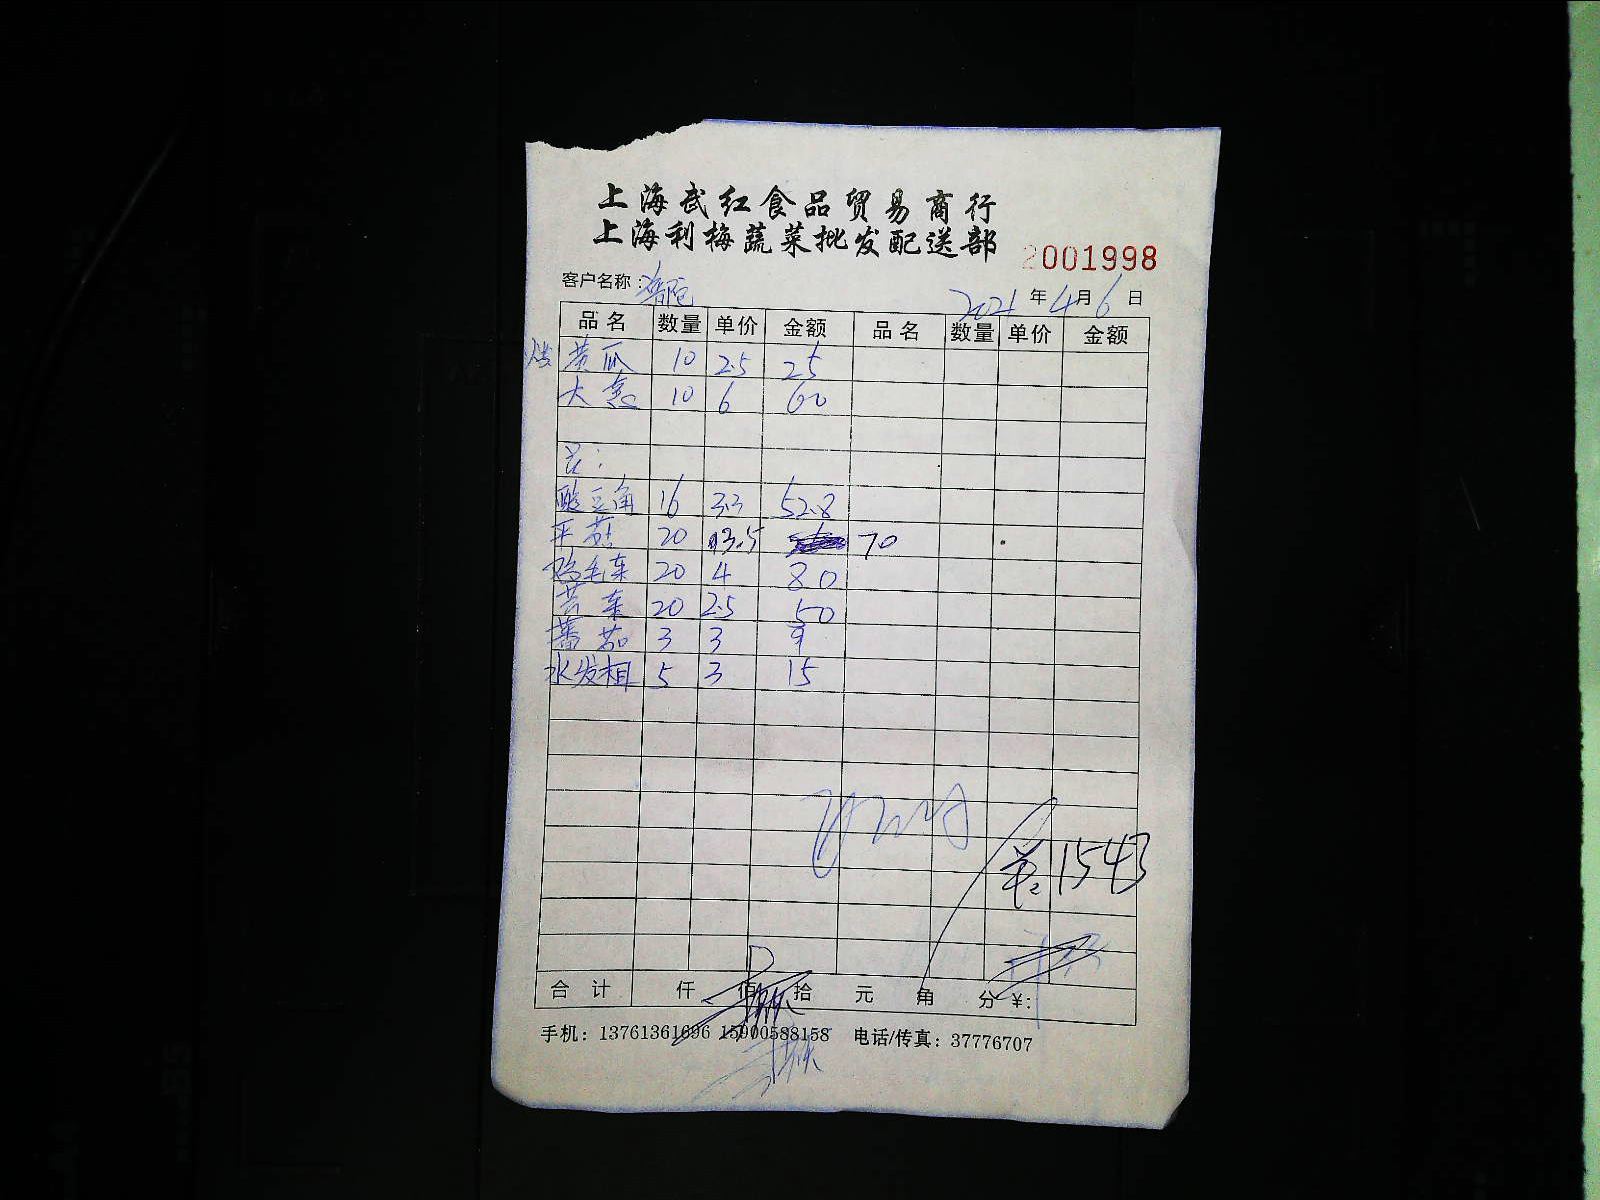 上海武红食品贸易商行
上海利梅蔬菜批发配送部
2001998
客户名称：
2021年4月6日
品名 数量 单价 金额 品名 数量 单价 金额
黄瓜 10 2.5 25
大葱 10 6 60
酸豆角 16 3.3 52.8
平菇 20 3.5 70
鸡毛菜 20 4 80
20 2.5 50
蕃茄 3 3 9
水发 5 3 15
1543
合计 仟 佰 拾 元 角 分 ¥:
手机：13761361696 15900588158 电话/传真：37776707